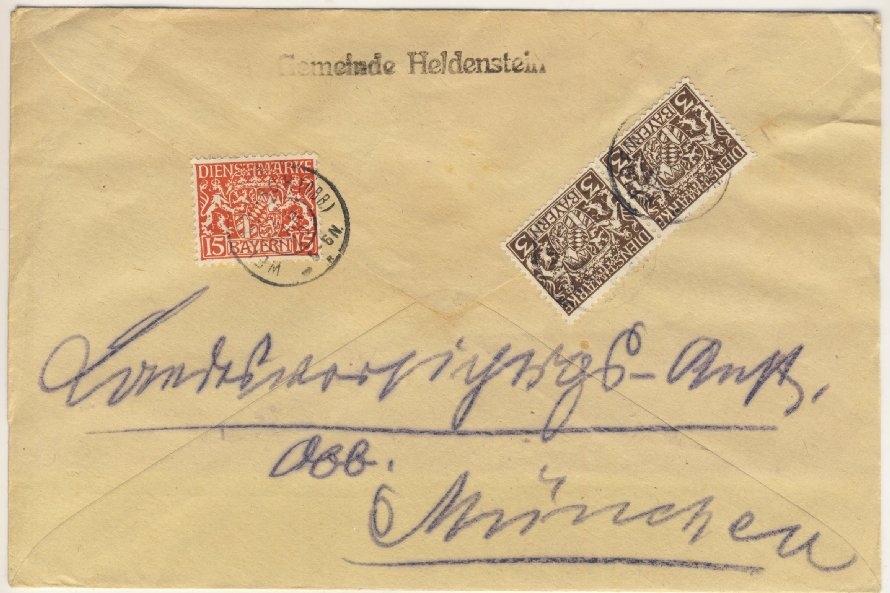 Gemeinde Heldenstein
DIENSTMARKE
15 BAYERN 15
6N.
3 BAYERN 3
DIENSTMARKE
3 BAYERN 3
DIENSTMARKE
Landesversichrgs-Anst.
Obb.
München